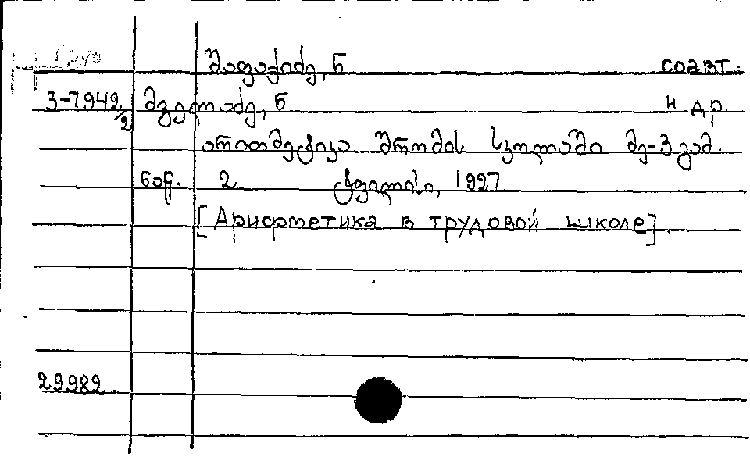 Груз
შაფაქიძე, ნ СОАВТ.
3-7949/2 მჭედლიძე, ნ И ДР
არითმეტიკა შრომის სკოლაში მე-3 გამ.
ნაწ. 2 ტფილისი, 1927
[Арифметика в трудовой школе]
29982